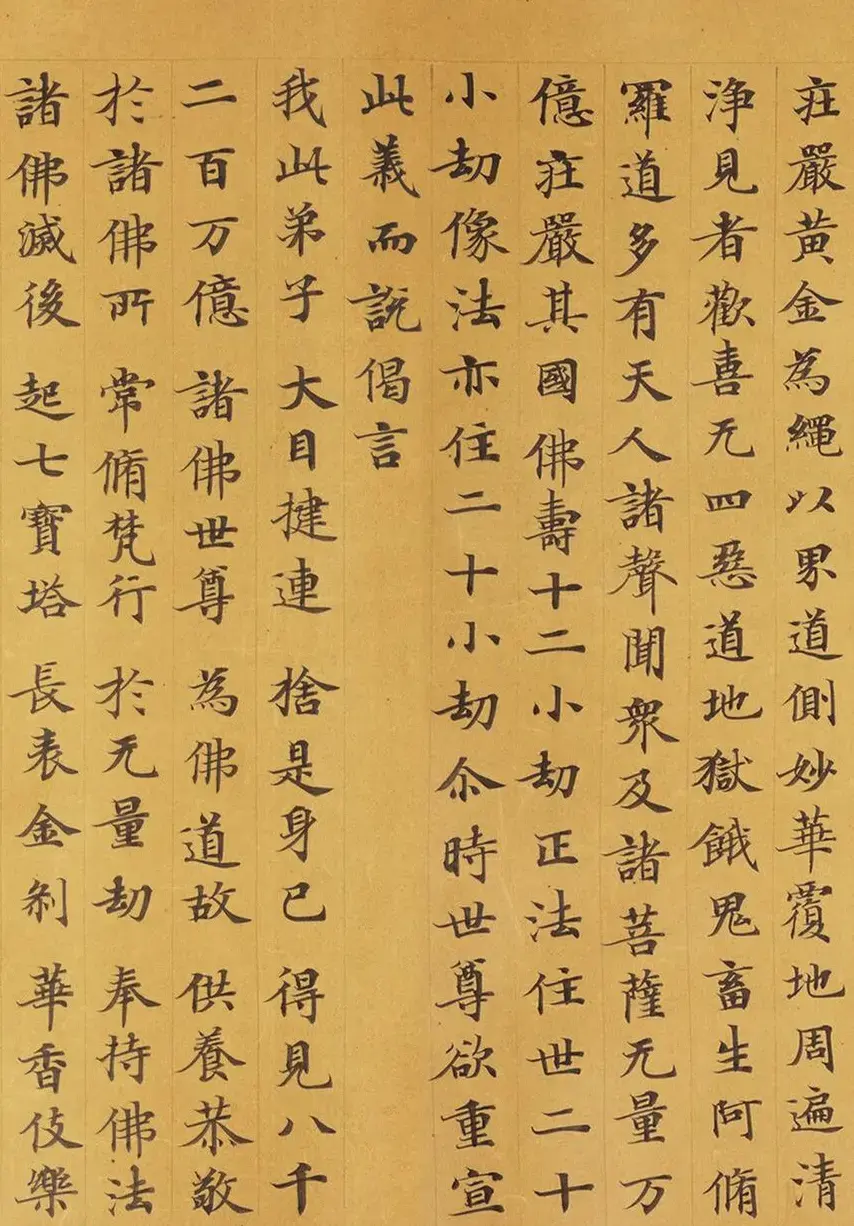 庄嚴黄金為繩以界道側妙華覆地周遍清
淨見者歡喜无四惡道地獄餓鬼畜生阿脩
羅道多有天人諸聲聞衆及諸菩薩无量万
億庄嚴其國佛壽十二小劫正法住世二十
小劫像法亦住二十小劫尒時世尊欲重宣
此義而說偈言
我此弟子 大目揵連 捨是身已 得見八千
二百万億 諸佛世尊 為佛道故 供養恭敬
於諸佛所 常脩梵行 於无量劫 奉持佛法
諸佛滅後 起七寶塔 長表金剎 華香伎樂